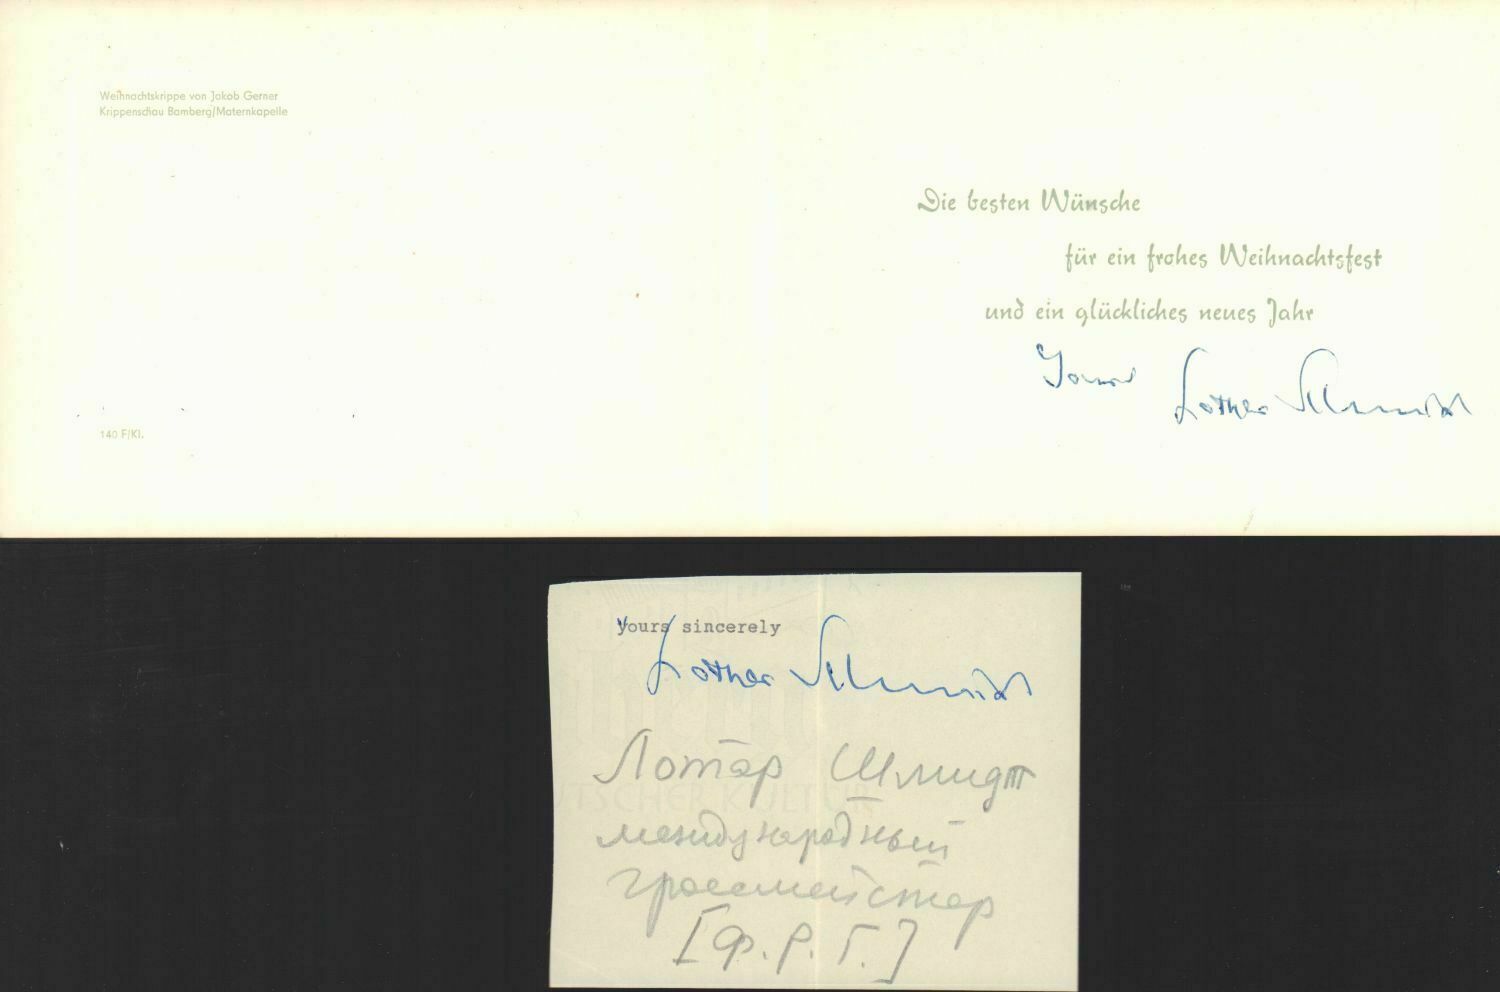 Weihnachtskrippe von Jakob Gerner
Krippenschau Bamberg/Maternkapelle
140 F/Kl.
Die besten Wünsche
für ein frohes Weihnachtsfest
und ein glückliches neues Jahr
Lothar Schmidt
yours sincerely
Lothar Schmidt
Лотар Шмидт
международный
гроссмейстер
[Ф.Р.Г.]